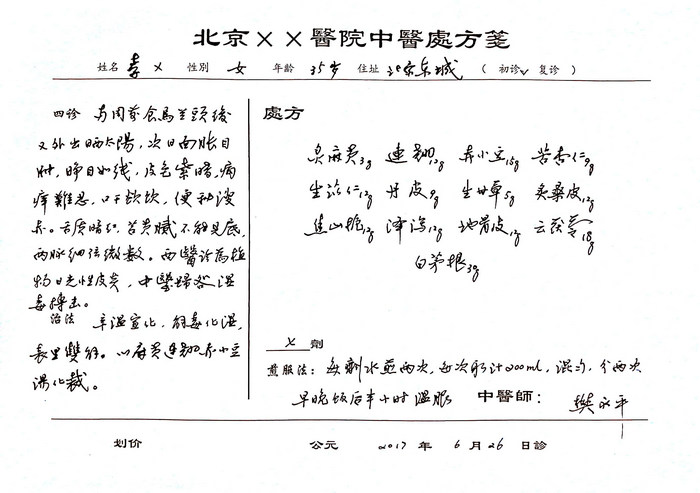 北京××醫院中醫處方箋
姓名 李× 性別 女 年龄 35岁 住址 北京东城 （ 初診✓ 复診 ）
四診 两周前食馬兰頭後
又外出晒太陽，次日面胀目
肿，睁目如线，皮色紫暗，痛
痒難忍，口干欲饮，便秘溲
赤。舌质暗红，苔黄腻不能見底，
两脉细弦微数。西醫診為植
物日光性皮炎，中醫歸咎湿
毒搏击。
治法 辛温宣化，解毒化湿，
表里雙解。以麻黄连翘赤小豆
湯化裁。
處方
炙麻黄3g 連翘12g 赤小豆15g 苦杏仁9g
生苡仁12g 丹皮9g 生甘草5g 炙桑皮12g
焦山栀12g 泽泻12g 地骨皮12g 云茯苓18g
白茅根30g
七 劑
煎服法：每劑水煎两次，每次取汁200ml，混匀，分两次
早晚饭后半小时温服 中醫師： 樊永平
划价 公元 2017 年 6 月 26 日診